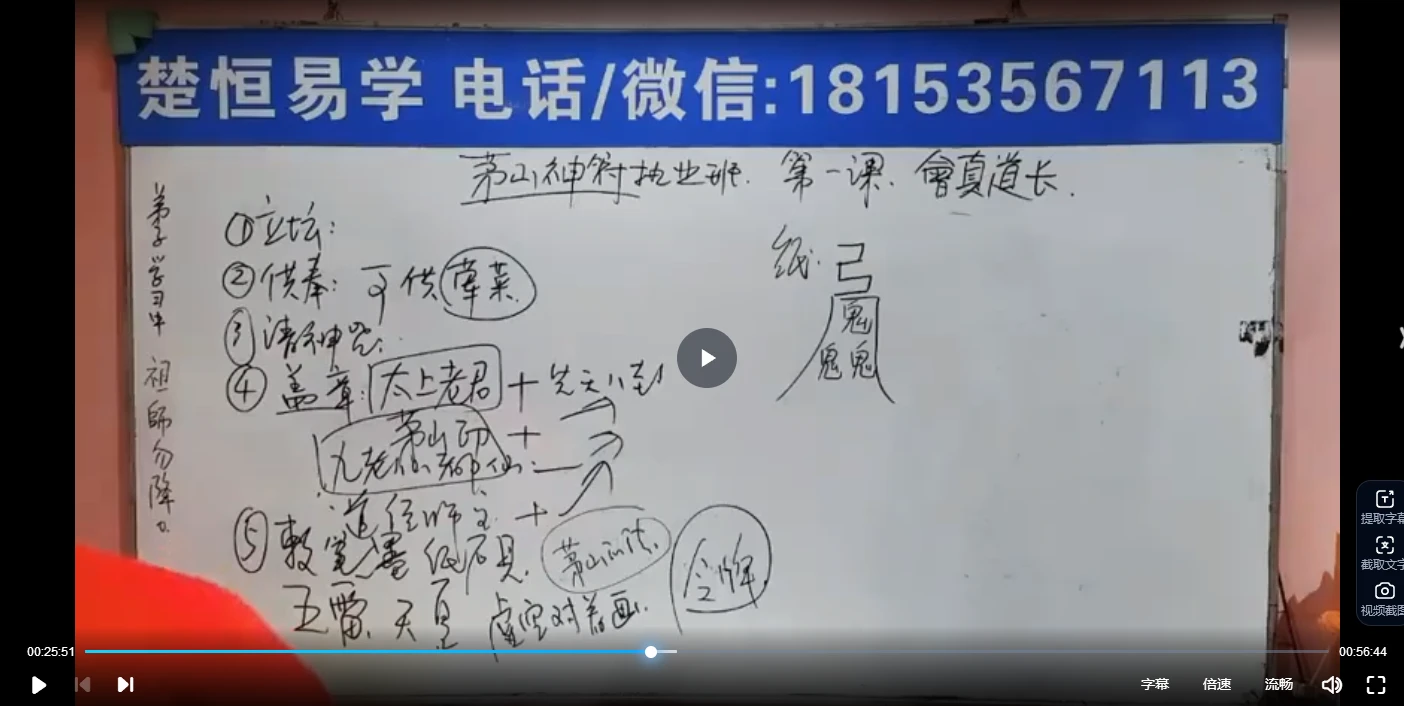 楚恒易学 电话/微信:18153567113
茅山神符执业班. 第一课. 會真道长.
弟子学习中 祖師勿降
①立坛:
②供奉: 可供荤菜.
③请神咒:
④盖章: 太上老君 + 先天八卦
茅山印 +
九老仙都仙:
道经师宝 +
⑤敕笔墨纸砚. 茅山令牌.
五雷. 天皇 虚空对着画.
纸:
弓
鬼
鬼鬼
提取字幕
截取文字
视频截图
00:25:51
00:56:44
字幕 倍速 流畅